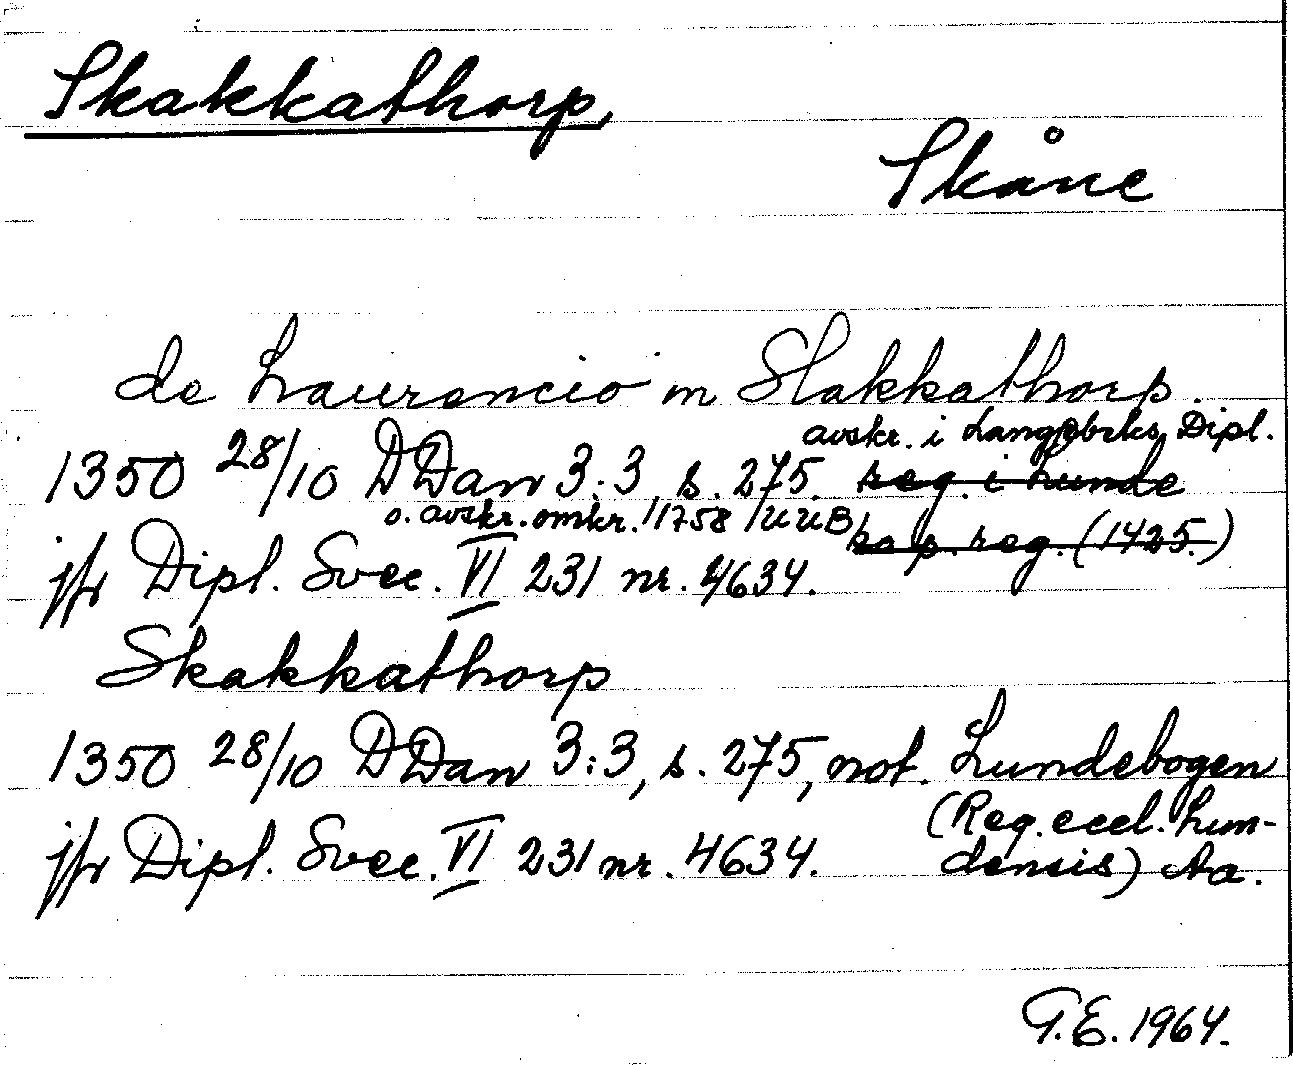 Skakkathorp,
Skåne
de Laurencio in Slakkathorp.
avskr. i Langebeks Dipl.
1350 28/10 DDan 3:3, s. 275. reg. i Lunde
o. avskr. omkr. 1758 i UUB kap. reg. (1425.)
jfr Dipl. Svec. VI 231 nr. 4634.
Skakkathorp
1350 28/10 DDan 3:3, s. 275, not. Lundebogen
(Reg. eccl. Lun-
jfr Dipl. Svec. VI 231 nr. 4634. densis) Aa.
G.E. 1964.